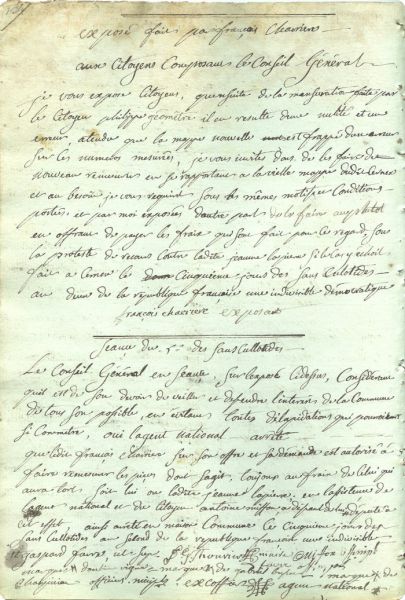 exposé fait par françois Charriere
aux Citoyens Composans le Conseil Général
je vous expose Citoyens, qu'ensuite de la par
le Citoyen philippe geometre il en resulte dune nulité et une
erreur, atendu que la mappe nouvelle frappé dun erreur
sur les numeros mesurés, je vous invites dons de les faire de
nouveau remesurer en se raportant a la vielle mappe dudit Cerne
et au besoin je vous requiert sous les mêmes motifs et Conditions
portés, et par moi exposés dautre part de le faire au plutot
en offrant de payer les fraix qui son fait pour ce regard, sou
la proteste de recours Contre ladite jeanne lapierre si le cas y echoit
fait a Cerne le Cinquieme jour des sans Culotides
an deux de la republique francaise une indivisible démocratique
françois charriere exposant
Seance du 5.me des sans Culottides
Le Conseil Général en Seance, sur lexposé Cidessus, Considerant
quil est de son devoir de veiller et defendre linterais de la Commune
de tous son possible, en evitans toutes délapidations qui pouroient
si Cometre, oui lagent national arrête
que ledit françois charrier sur son offre et sa demande est autorisé a
faire remesurer les pieces dont sagit, toujours au frais de celui qui
aura tors, soit lui ou ladite jeanne lapierre, en lasistence de
lagent national et du Citoyen antoine a
Cet effet ainsi arrêté en maison Commune Ce Cinquieme jour des
sans Culottides an second de la republique francoise une indivisible
gaspard favre, maire
marque dont
officier agent national